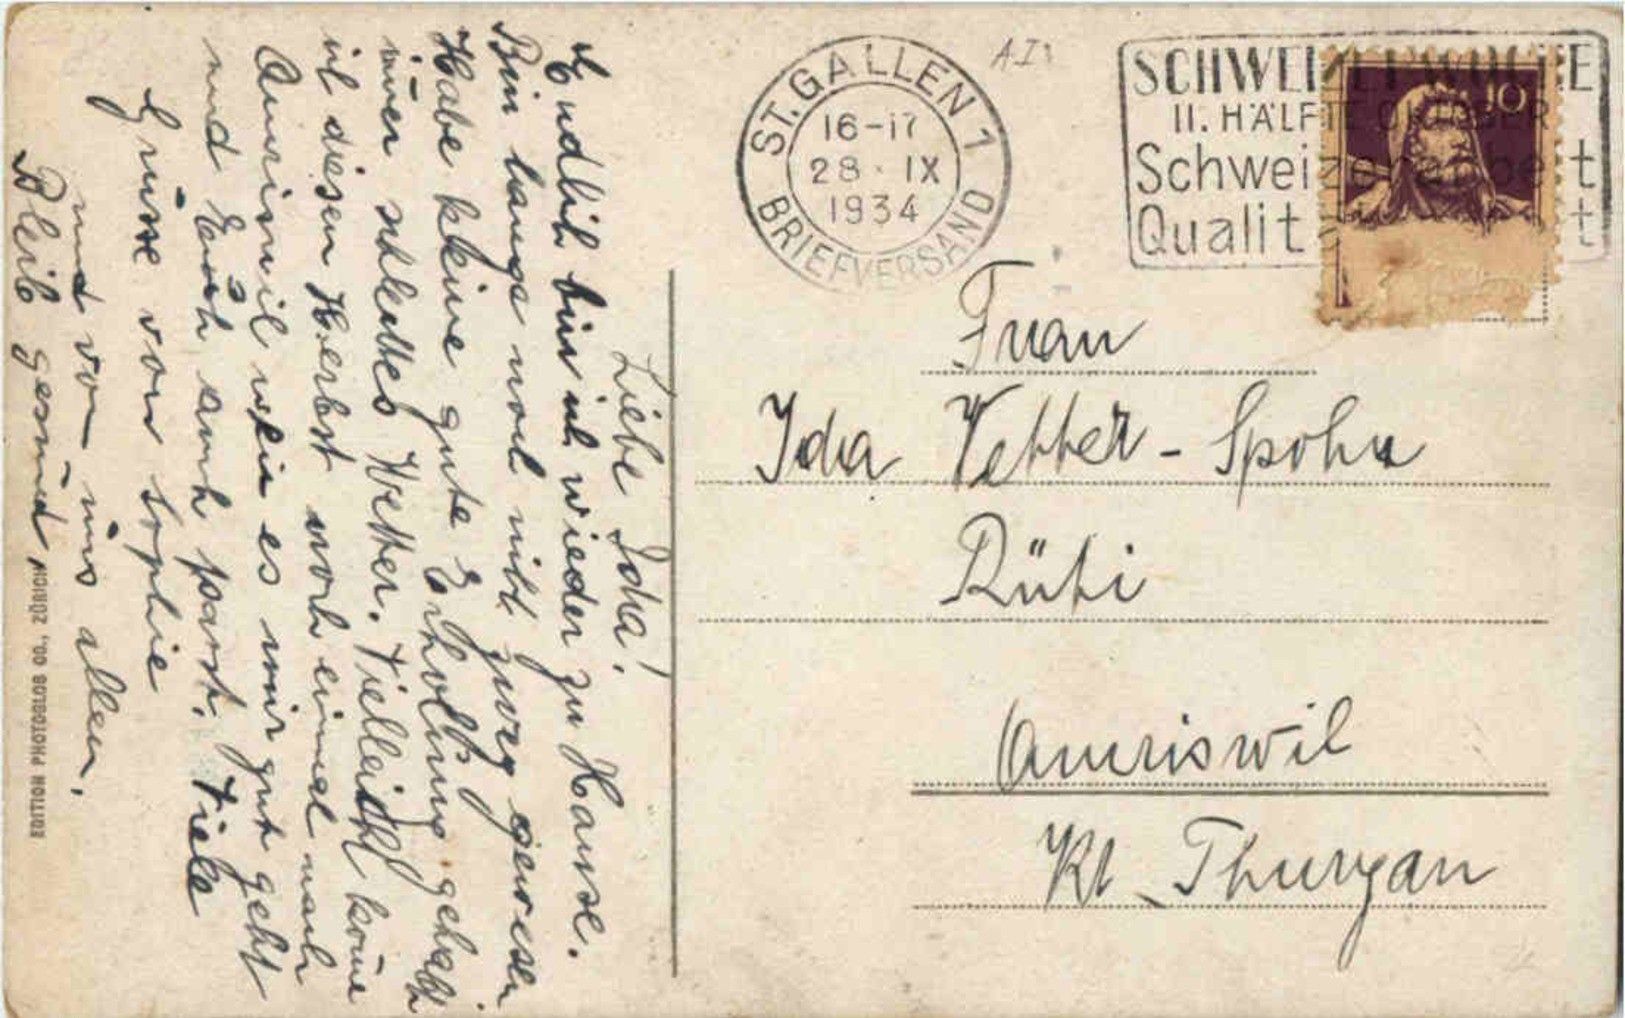 Liebe Ida!
Endlich bin ich wieder zu Hause.
Bin lange noch nicht zwäg gewesen
Habe keine gute Erholung gehabt
imer schlechtes Wetter. Vielleicht kome
ich diesen Herbst noch einmal nach
Amriswil wen es mir gut geht
und Euch auch passt. Viele
Grüsse von Sophie
und von uns allen.
Bleib gesund,
EDITION PHOTOGLOB CO., ZÜRICH
ST. GALLEN 1
16-17
28 · IX
1934
BRIEFVERSAND
SCHWEIZERWOCHE
II. HÄLFTE OKTOBER
Schweizerarbeit
Qualit t
10
Frau
Ida Vetter-Spohn
Rüti
Amriswil
Kt. Thurgau